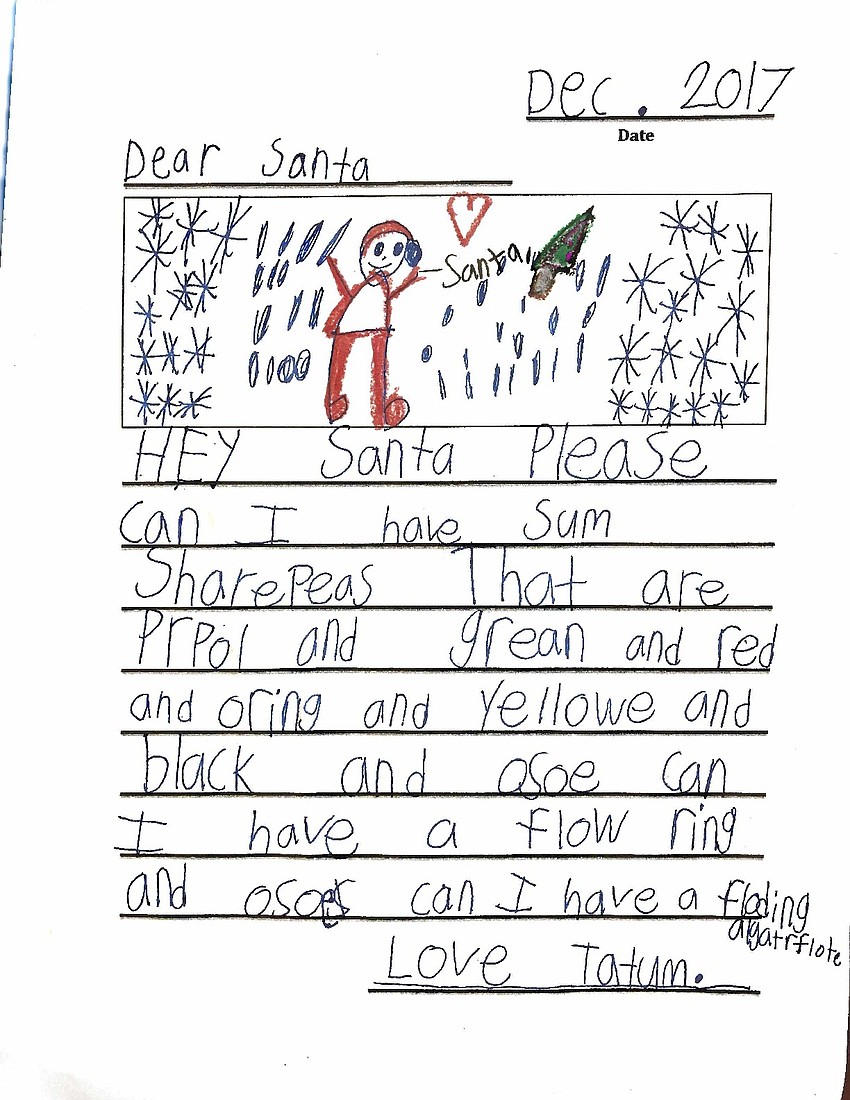 Dec. 2017
Date
Dear Santa
Santa
HEY Santa Please
can I have sum
SharePeas That are
PrPol and grean and red
and oring and yellowe and
black and osoe can
I have a flow ring
and osoe can I have a floding
algatrflote
Love Tatum.